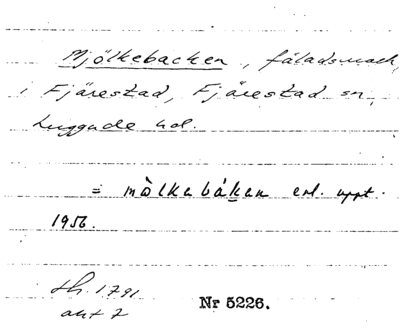 Mjölkebacken, fäladsmark,
i Fjärestad, Fjärestad sn,
Luggude hd.
= mòlkebákan enl. uppt.
1956.
sh. 1791
akt 7
Nr 5226.